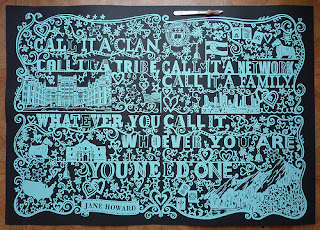 CALL IT A CLAN,
CALL IT A NETWORK,
CALL IT A TRIBE,
CALL IT A FAMILY.
WHATEVER YOU CALL IT,
WHOEVER YOU ARE,
YOU NEED ONE.
JANE HOWARD